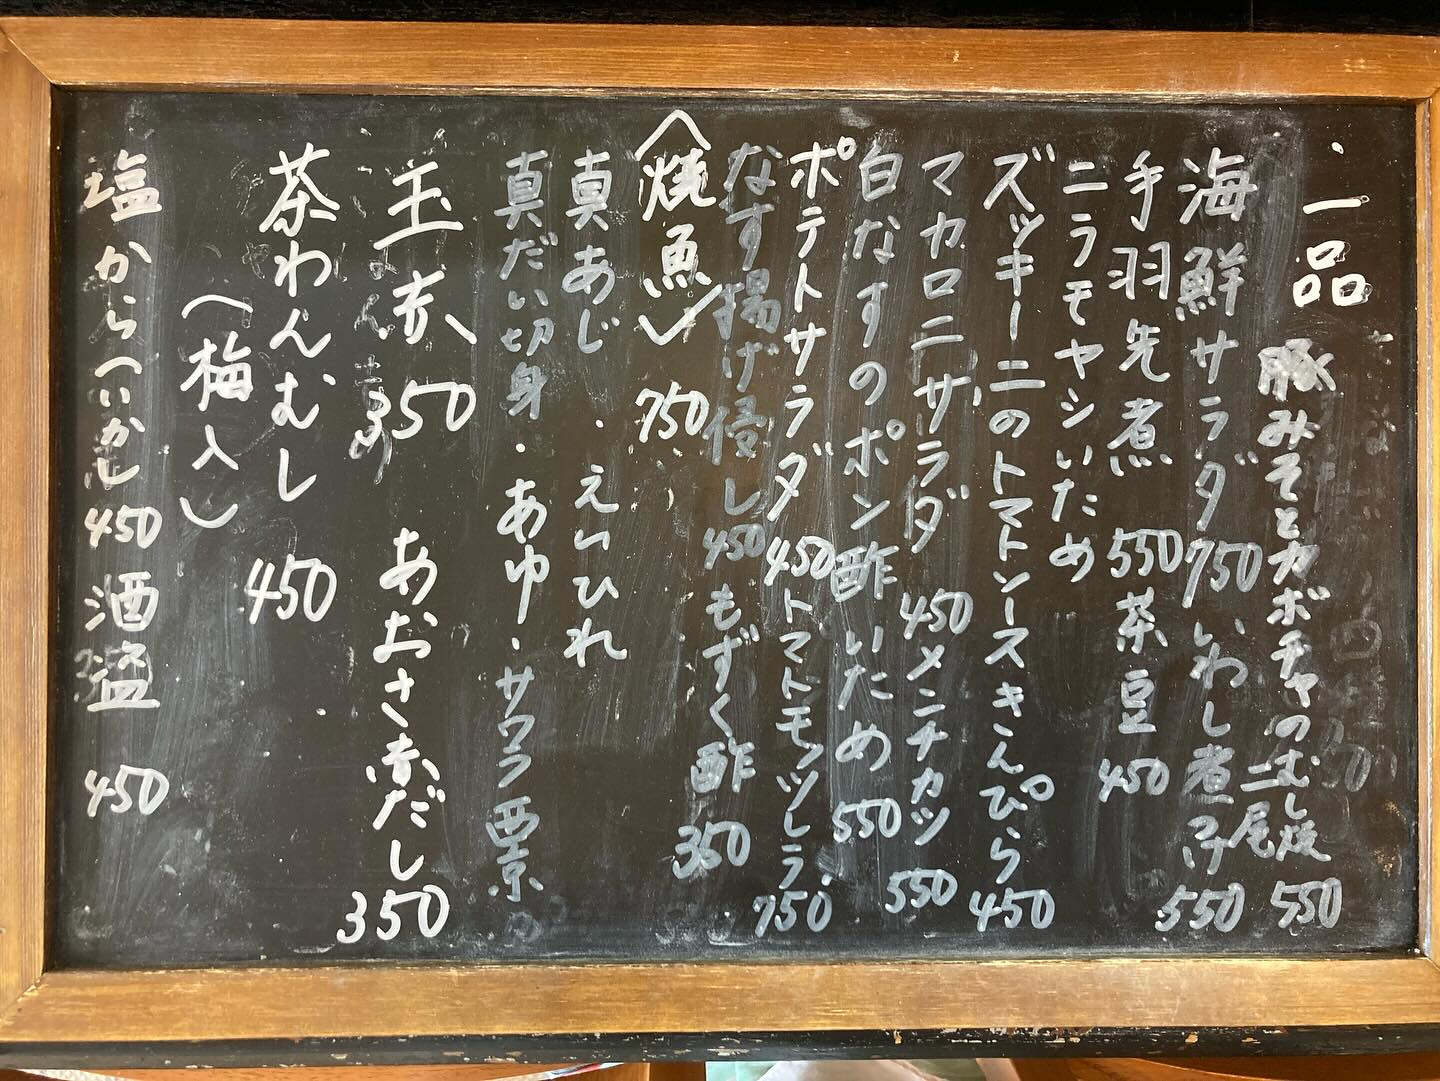 ・一品
豚みそとカボチャのむし焼 550
海鮮サラダ 750 いわし煮 二尾 550
手羽先煮 550 茶豆 450
ニラモヤシいため
ズッキーニのトマトソースきんぴら 450
マカロニサラダ 450 メンチカツ 550
白なすのポン酢いため 550
ポテトサラダ 450 トマトモッツレラ 750
なす揚げ侵し 450 もずく酢 350
〈焼魚〉 750
真あじ・えいひれ
真だい切身・あゆ・サワラ西京
玉衣 350 あおさ赤だし 350
茶わんむし 450
（梅入）
塩から〈いか〉 450 酒盗 450